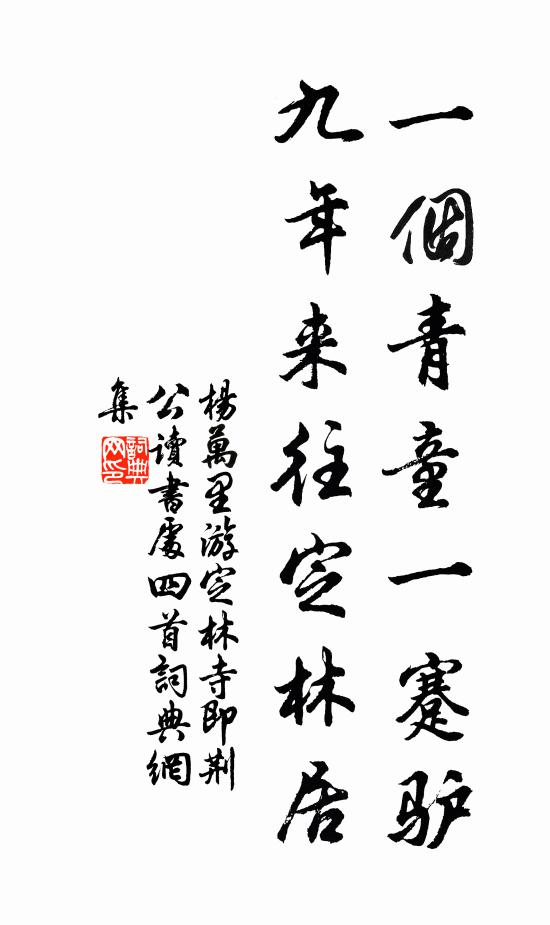 一個青童一蹇驴
九年来往定林居
楊萬里游定林寺即荆
公讀書處四首詞典網
集
詞典
网印